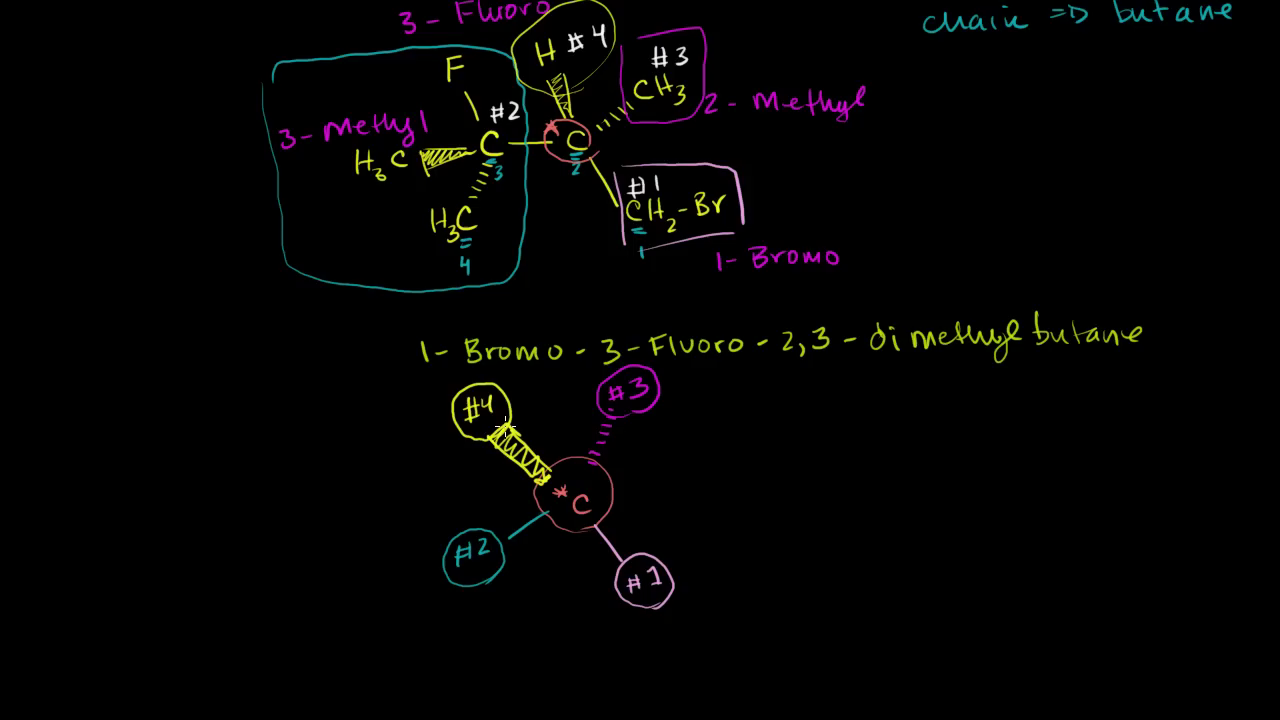 3 - Fluoro
chain => butane
H #4
#3
CH3
F
#2
3 - Methyl
2 - Methyl
H3C
C
3
* C
2
#1
CH2 - Br
1
H3C
4
1 - Bromo
1 - Bromo - 3 - Fluoro - 2,3 - dimethylbutane
#4
#3
* C
#2
#1